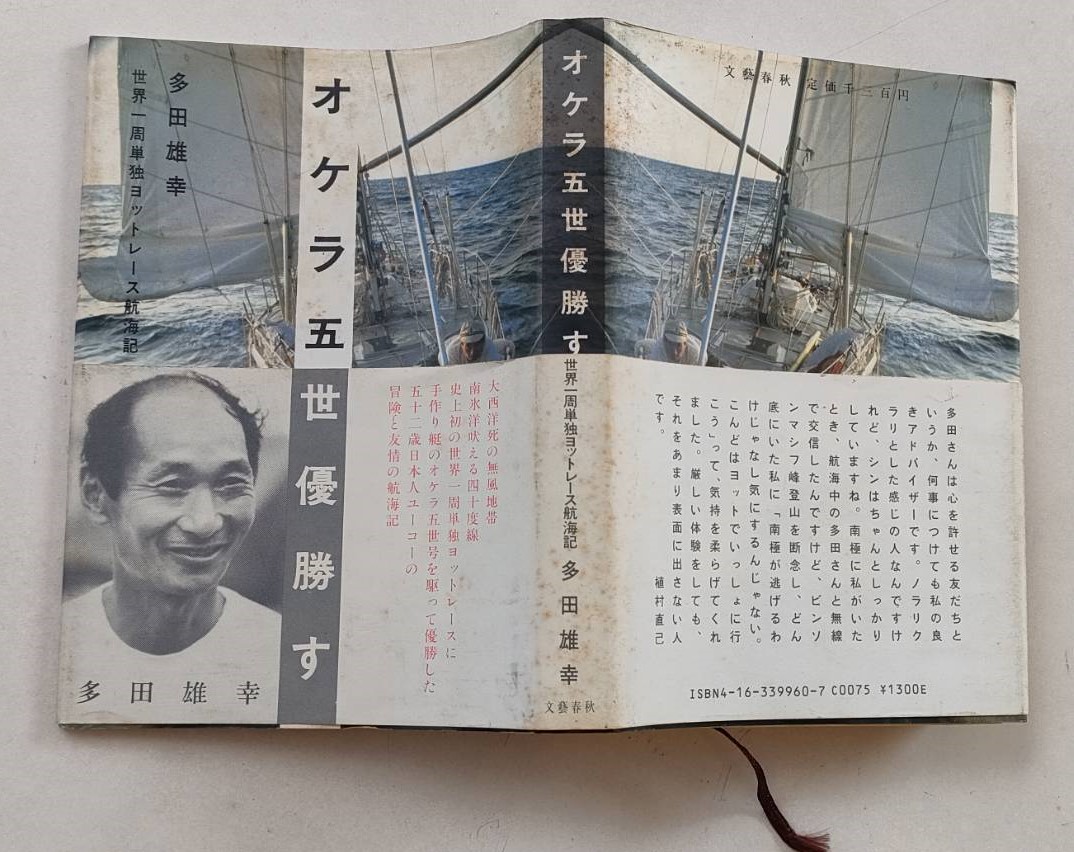 オケラ五世優勝す
多田雄幸
世界一周単独ヨットレース航海記
大西洋死の無風地帯
南氷洋吠える四十度線
史上初の世界一周単独ヨットレースに
手作り艇のオケラ五世号を駆って優勝した
五十二歳日本人ユーコーの
冒険と友情の航海記
多田雄幸
オケラ五世優勝す
世界一周単独ヨットレース航海記
多田雄幸
文藝春秋
文藝春秋 定価千三百円
多田さんは心を許せる友だちと
いうか、何事につけても私の良
きアドバイザーです。ノラリク
ラリとした感じの人なんですけ
れど、シンはちゃんとしっかり
していますね。南極に私がいた
とき、航海中の多田さんと無線
で交信したんですけど、ビンソ
ンマシフ峰登山を断念し、どん
底にいた私に「南極が逃げるわ
けじゃなし気にするんじゃない。
こんどはヨットでいっしょに行
こう」って、気持を柔らげてくれ
ました。厳しい体験をしても、
それをあまり表面に出さない人
です。
植村直己
ISBN4-16-339960-7 C0075 ¥1300E